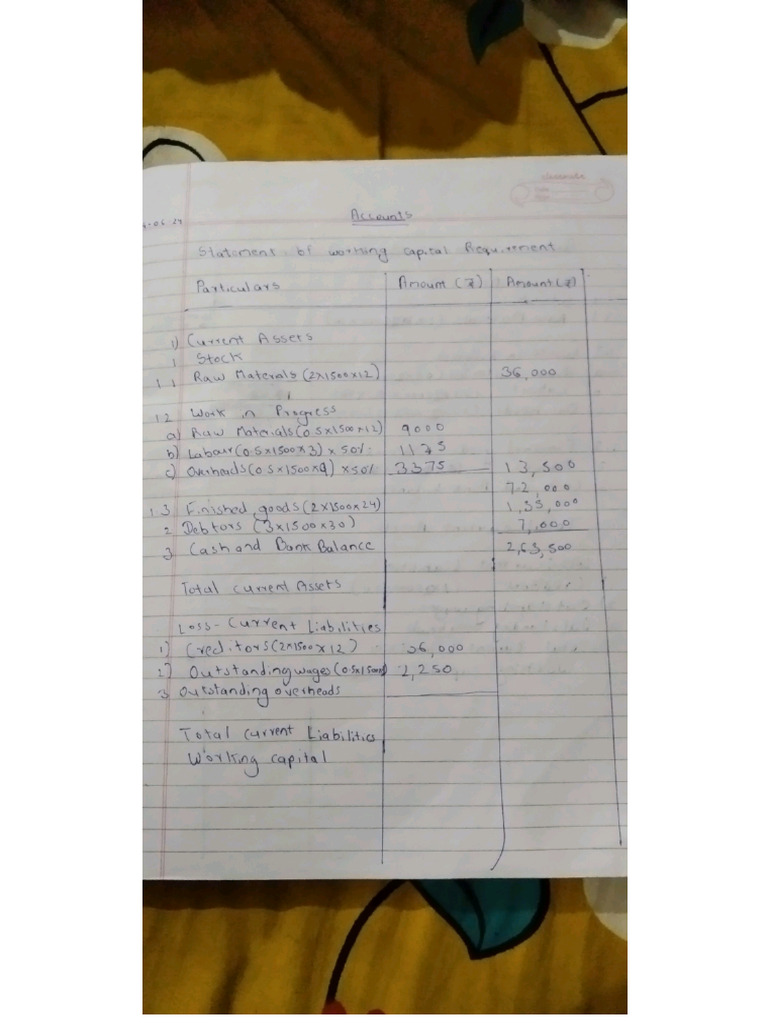 Accounts
Statement of working capital Requirement
Particulars Amount (₹) Amount (₹)
1) Current Assets
1 Stock
1.1 Raw Materials (2x1500x12) 36,000
1.2 Work in Progress
a) Raw Materials (0.5x1500x12) 9000
b) Labour (0.5x1500x3) x 50%. 1125
c) Overheads (0.5x1500x9) x50% 3375 13,500
72,000
1.3 Finished goods (2x1500x24) 1,35,000
2 Debtors (3x1500x30) 7,000
3 Cash and Bank Balance 2,63,500
Total current Assets
Loss - Current Liabilities
1) Creditors (2x1500x12) 36,000
2) Outstanding wages 2,250
3 Outstanding overheads
Total current Liabilities
Working capital